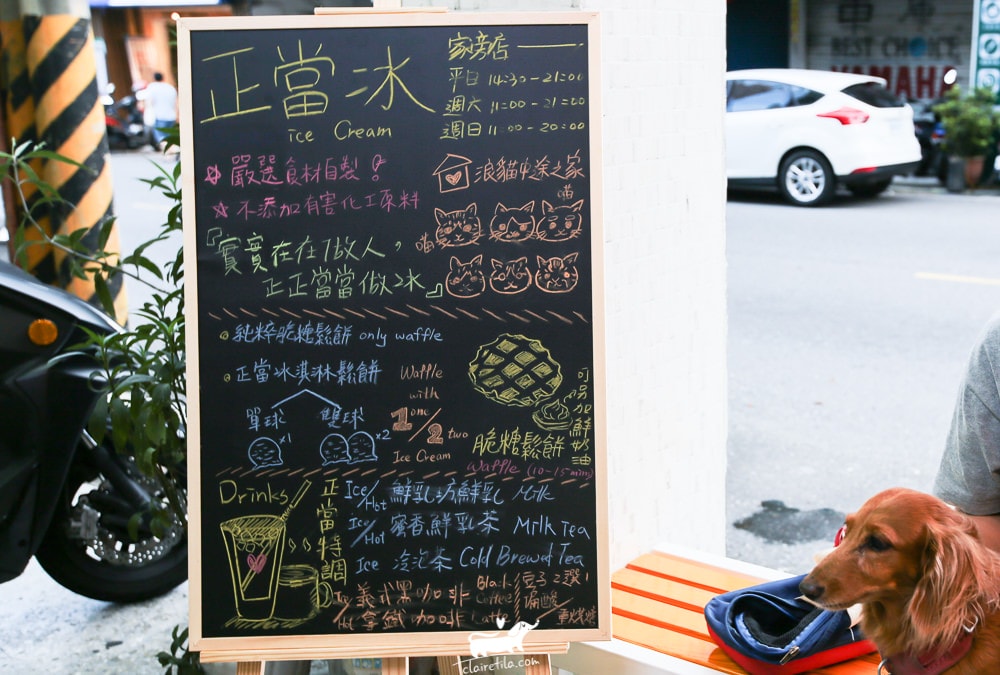 正當冰
ice Cream
家旁店
平日 14:30-21:00
週六 11:00-21:00
週日 11:00-20:00
嚴選食材自製!
不添加有害化工原料
『實實在在做人,
正正當當做冰』
浪貓中途之家
喵
喵
純粹脆糖鬆餅 only waffle
正當冰淇淋鬆餅
Waffle
with
1 one/2 two
Ice Cream
單球
x1
雙球
x2
可另加鮮奶油
脆糖鬆餅
Waffle (10~15mins)
Drinks
正當特調
Ice/Hot 鮮乳坊鮮乳 Milk
Ice/Hot 蜜香鮮乳茶 Milk Tea
Ice 冷泡茶 Cold Brewed Tea
義式黑咖啡 Black Coffee
拿鐵咖啡 Latte
豆子2選1
偏酸/重烘焙
BEST CHOICE
YAMAHA
clairetila.com